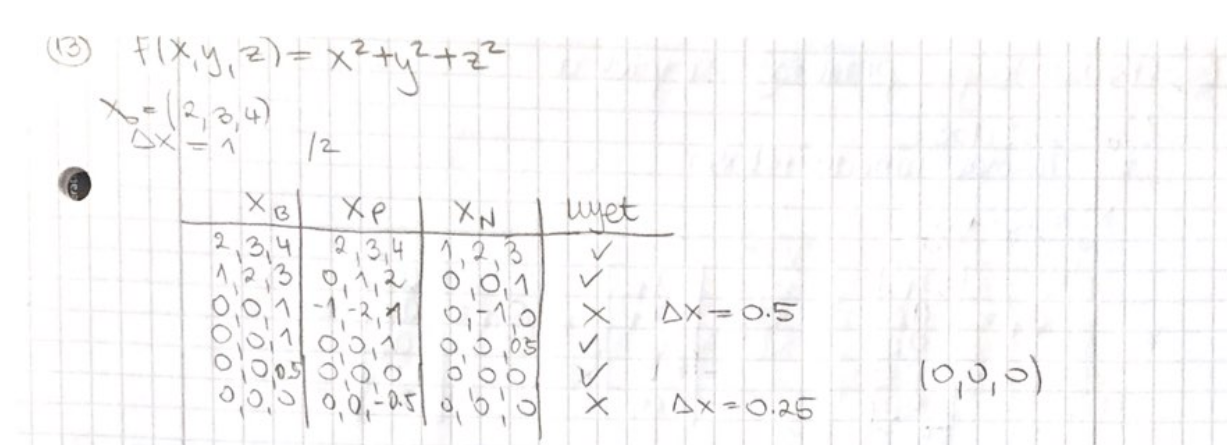 (13) F(x,y,z) = x²+y²+z²
x₀ = (2,3,4)
Δx = 1 /2
x_B x_P x_N uvjet
2,3,4 2,3,4 1,2,3 ✓
1,2,3 0,1,2 0,0,1 ✓
0,0,1 -1,-2,-1 0,-1,0 × Δx=0.5
0,0,1 0,0,1 0,0,0.5 ✓
0,0,0.5 0,0,0 0,0,0 ✓ (0,0,0)
0,0,0 0,0,-0.5 0,0,0 × Δx=0.25